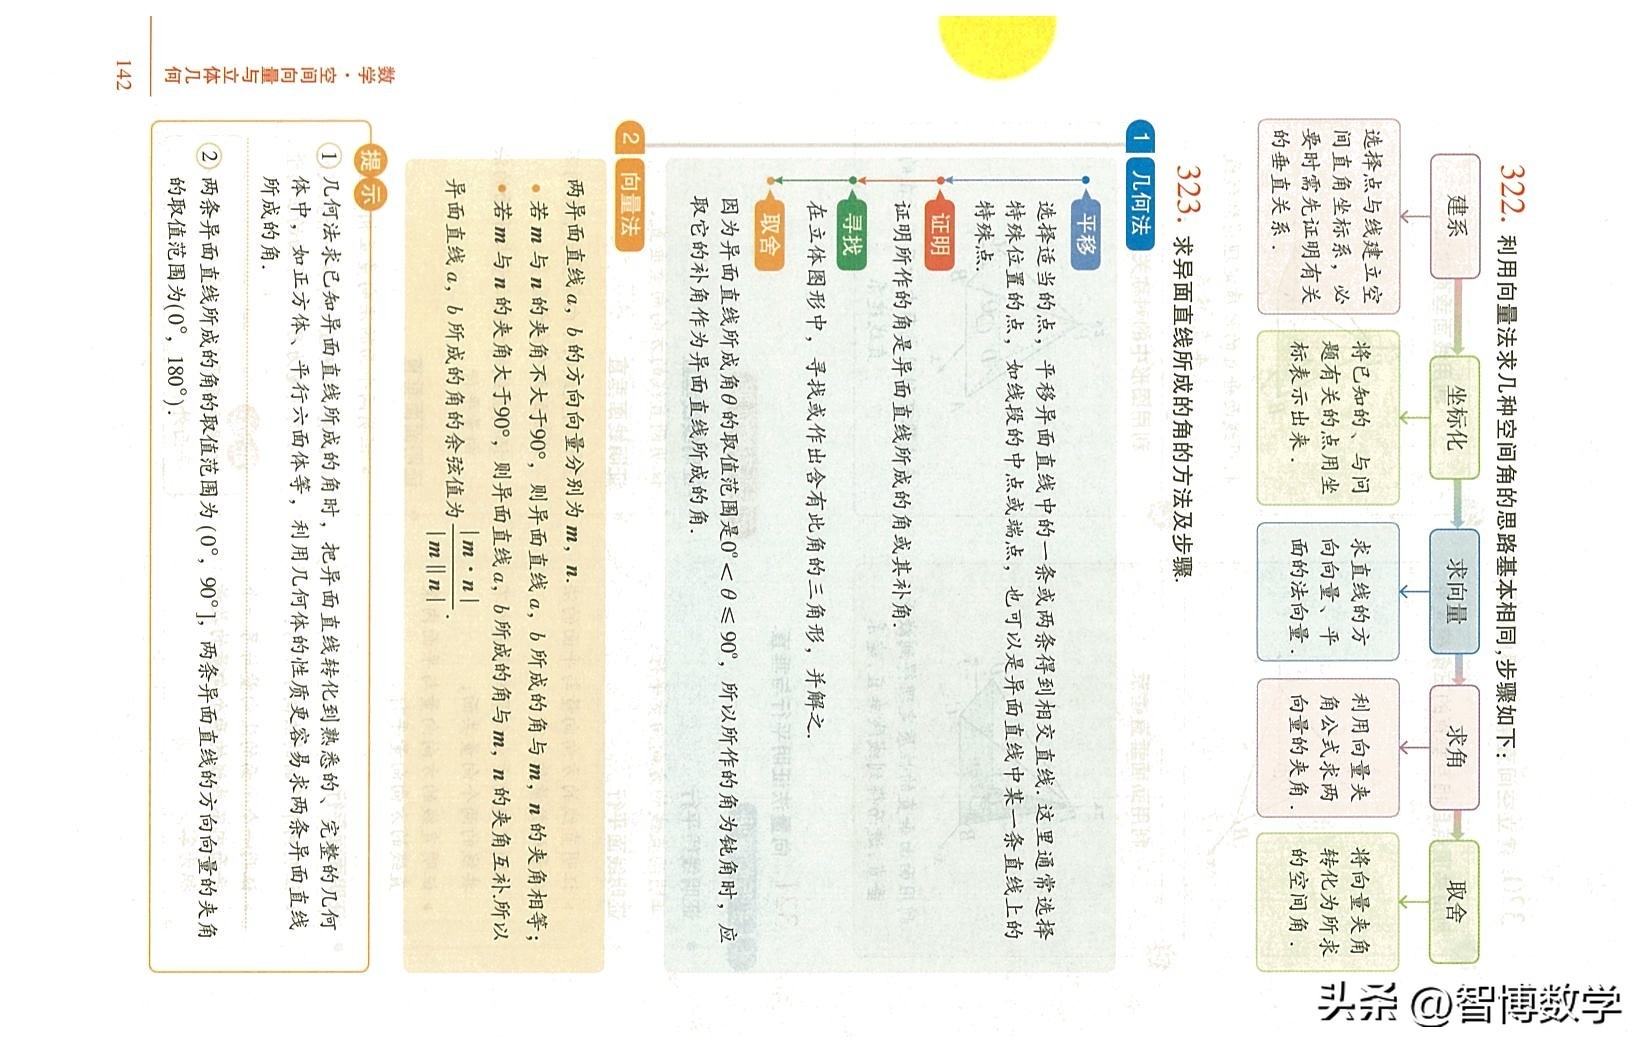 322. 利用向量法求几种空间角的思路基本相同,步骤如下:
建系
坐标化
求向量
求角
取舍
选择点与线建立空
间直角坐标系，必
要时需先证明有关
的垂直关系.
将已知的、与问
题有关的点用坐
标表示出来.
求直线的方
向向量、平
面的法向量.
利用向量夹
角公式求两
向量的夹角.
将向量夹角
转化为所求
的空间角.
323. 求异面直线所成的角的方法及步骤.
1 几何法
平移
选择适当的点，平移异面直线中的一条或两条得到相交直线.这里通常选择
特殊位置的点，如线段的中点或端点，也可以是异面直线中某一条直线上的
特殊点.
证明
证明所作的角是异面直线所成的角或其补角.
寻找
在立体图形中，寻找或作出含有此角的三角形，并解之.
取舍
因为异面直线所成角θ的取值范围是0°＜θ≤90°，所以所作的角为钝角时，应
取它的补角作为异面直线所成的角.
2 向量法
两异面直线a，b的方向向量分别为m，n.
• 若m与n的夹角不大于90°，则异面直线a，b所成的角与m，n的夹角相等；
• 若m与n的夹角大于90°，则异面直线a，b所成的角与m，n的夹角互补.所以
异面直线a，b所成的角的余弦值为|m·n|/|m||n|.
提示
① 几何法求已知异面直线所成的角时，把异面直线转化到熟悉的、完整的几何
体中，如正方体、平行六面体等，利用几何体的性质更容易求两条异面直线
所成的角.
② 两条异面直线所成的角的取值范围为(0°，90°]，两条异面直线的方向向量的夹角
的取值范围为(0°，180°).
数学·空间向量与立体几何
142
头条 @智博数学